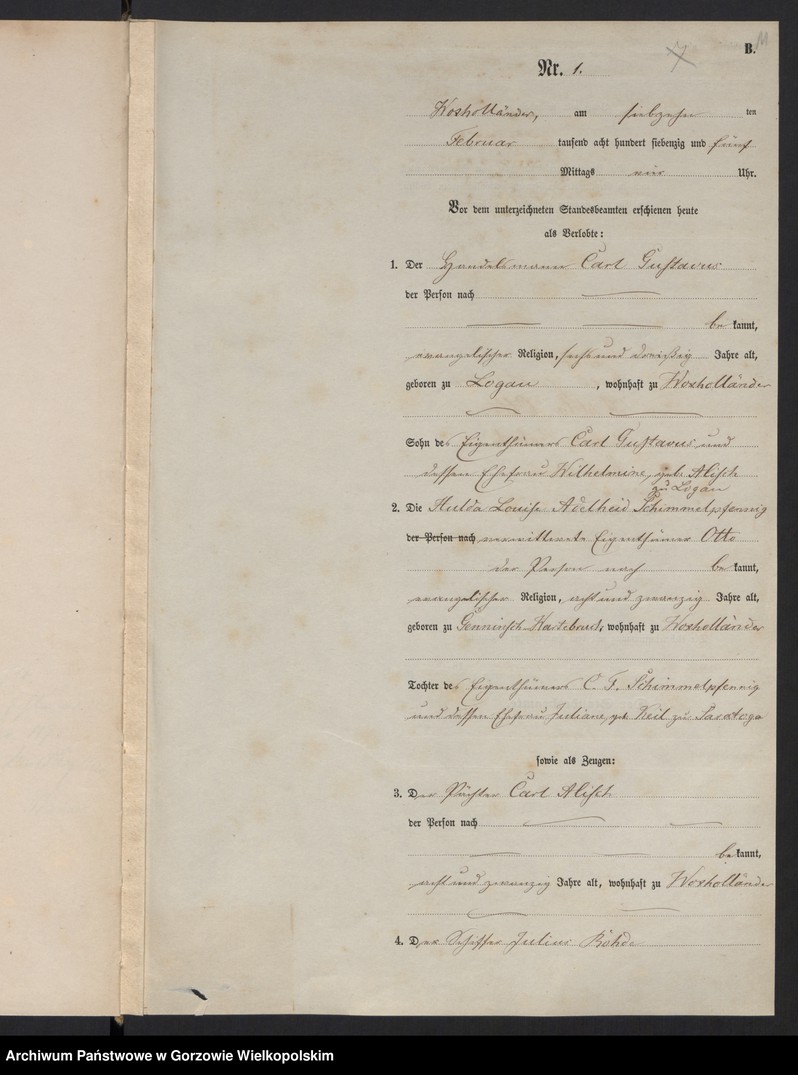 B.
Nr. 1.
Woxholländer, am siebzehn ten
Februar tausend acht hundert siebenzig und fünf
Mittags vier Uhr.
Vor dem unterzeichneten Standesbeamten erschienen heute
als Verlobte:
1. Der Handelsmann Carl Gustavus
der Person nach
be kannt,
evangelischer Religion, sechs und dreißig Jahre alt,
geboren zu Logau, wohnhaft zu Woxholländer
Sohn des Eigenthümers Carl Gustavus und
dessen Ehefrau Wilhelmine, geb. Alisch
zu Logau
2. Die Hulda Louise Adelheid Schimmelpfennig
der Person nach verwittwete Eigenthümer Otto
der Person nach be kannt,
evangelischer Religion, acht und zwanzig Jahre alt,
geboren zu Genninsch, wohnhaft zu Woxholländer
Tochter des Eigenthümers C. F. Schimmelpfennig
und dessen Ehefrau Juliane, geb. Keil zu Saratoga
sowie als Zeugen:
3. Der Pächter Carl Alisch
der Person nach
be kannt,
acht und zwanzig Jahre alt, wohnhaft zu Woxholländer
4. Der Schiffer Julius Rohde
Archiwum Państwowe w Gorzowie Wielkopolskim